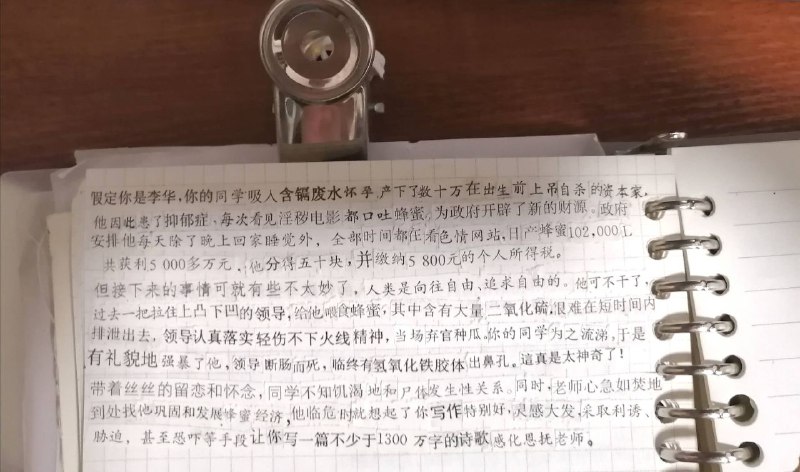 假定你是李华,你的同学吸入含镉废水怀孕,产下了数十万在出生前上吊自杀的资本家,
他因此患了抑郁症,每次看见淫秽电影都口吐蜂蜜,为政府开辟了新的财源。政府
安排他每天除了晚上回家睡觉外,全部时间都在看色情网站,日产蜂蜜102,000L
共获利5 000多万元、他分得五十块,并缴纳5 800元的个人所得税。
但接下来的事情可就有些不太妙了,人类是向往自由、追求自由的。他可不干了,
过去一把拉住上凸下凹的领导,给他喂食蜂蜜,其中含有大量二氧化硫,很难在短时间内
排泄出去,领导认真落实轻伤不下火线精神,当场弃官种瓜。你的同学为之流涕,于是
有礼貌地强暴了他,领导断肠而死,临终有氢氧化铁胶体出鼻孔。這真是太神奇了!
带着丝丝的留恋和怀念,同学不知饥渴地和尸体发生性关系。同时,老师心急如焚地
到处找他巩固和发展蜂蜜经济,他临危时就想起了你写作特别好,灵感大发,采取利诱、
胁迫,甚至恐吓等手段让你写一篇不少于1300万字的诗歌感化恩抚老师。